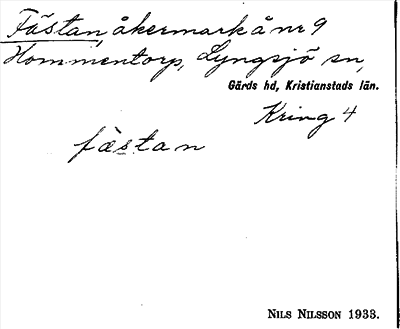 Fästan, åkermark å nr 9
Hommentorp, Lyngsjö sn,
Gärds hd, Kristianstads län.
Kring 4
fàstan
NILS NILSSON 1933.